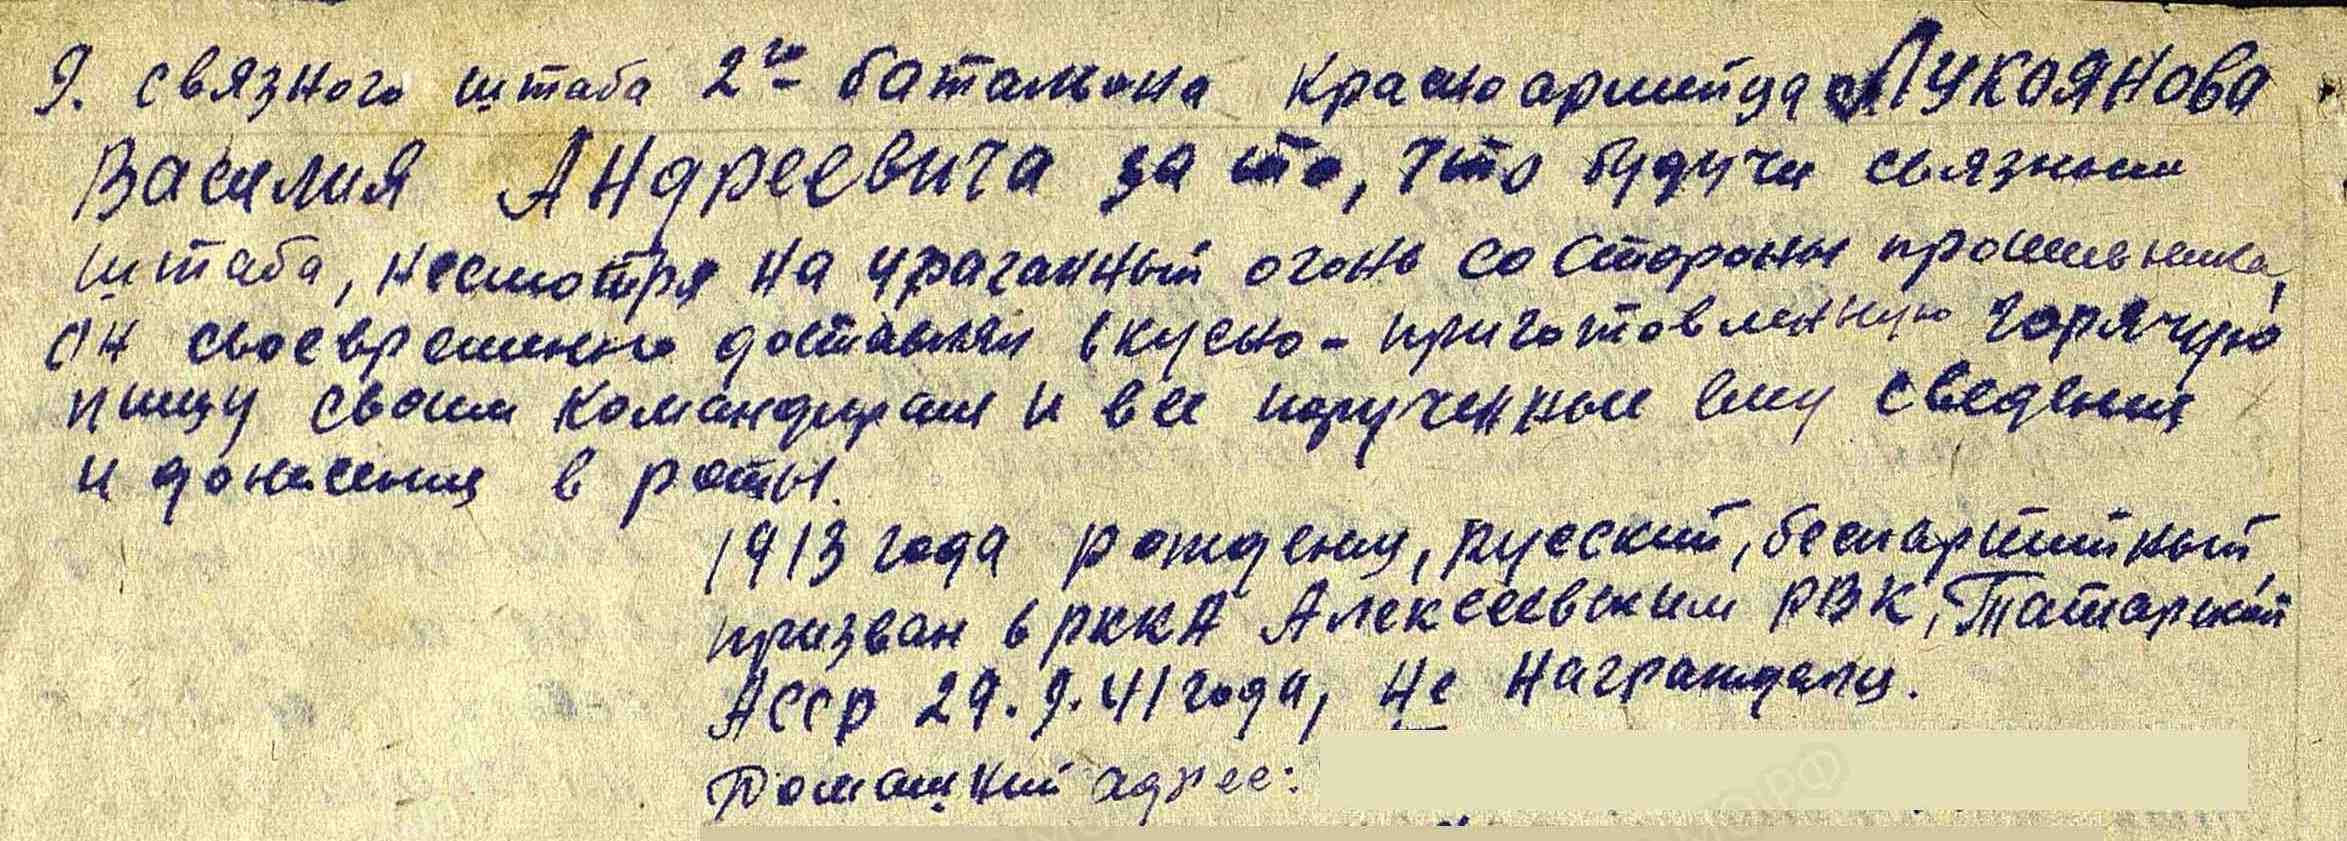 9. связного штаба 2го батальона красноармейца Лукоянова
Василия Андреевича за то, что будучи связным
штаба, несмотря на ураганный огонь со стороны противника,
он своевременно доставлял вкусно-приготовленную горячую
пищу своим командирам и все порученные ему сведения
и донесения в роты.
1913 года рождения, русский, беспартийный,
призван в РККА Алексеевским РВК, Татарской
АССР 29.9.41 года, не награждался.
Домашний адрес: